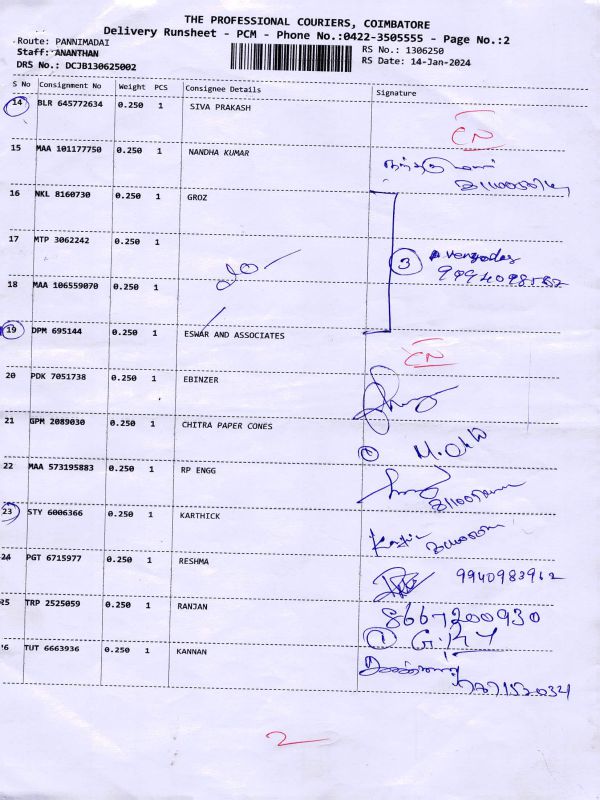 THE PROFESSIONAL COURIERS, COIMBATORE
Delivery Runsheet - PCM - Phone No.:0422-3505555 - Page No.:2
Route: PANNIMADAI
RS No.: 1306250
Staff: ANANTHAN
RS Date: 14-Jan-2024
DRS No.: DCJB130625002
S No Consignment No Weight PCS Consignee Details Signature
14 BLR 645772634 0.250 1 SIVA PRAKASH
CN
15 MAA 101177750 0.250 1 NANDHA KUMAR
16 NKL 8160730 0.250 1 GROZ
17 MTP 3062242 0.250 1
3
18 MAA 106559070 0.250 1
19 DPM 695144 0.250 1 ESWAR AND ASSOCIATES
CN
20 PDK 7051738 0.250 1 EBINZER
21 GPM 2089030 0.250 1 CHITRA PAPER CONES
22 MAA 573195883 0.250 1 RP ENGG
23 STY 6006366 0.250 1 KARTHICK
24 PGT 6715977 0.250 1 RESHMA
9940983962
25 TRP 2525059 0.250 1 RANJAN
8667200930
1 G.R.Y
26 TUT 6663936 0.250 1 KANNAN
2